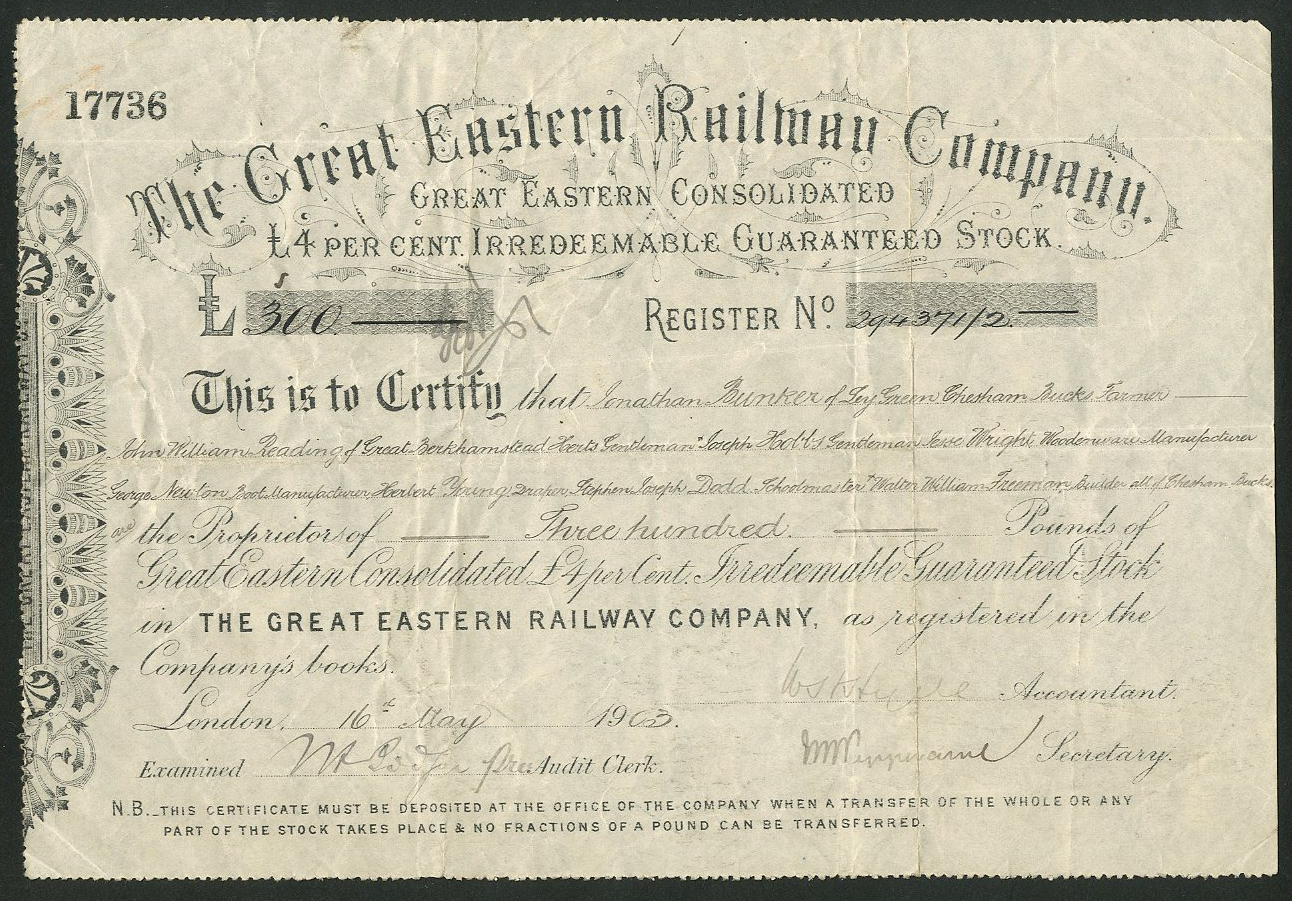 17736
The Great Eastern Railway Company.
GREAT EASTERN CONSOLIDATED
£4 PER CENT. IRREDEEMABLE GUARANTEED STOCK.
£ 300 REGISTER No. 294371/2.
This is to Certify that Jonathan Bunker of Ley Green Chesham Bucks Farmer
John William Reading of Great Berkhamstead Herts Gentleman Joseph Hobbs Gentleman Jesse Wright Woodenware Manufacturer
George Newton Boot Manufacturer Herbert Young Draper Stephen Joseph Dodd Schoolmaster & Walter William Freeman Builder all of Chesham Bucks
are the Proprietors of Three hundred. Pounds of
Great Eastern Consolidated £4 per Cent. Irredeemable Guaranteed Stock
in THE GREAT EASTERN RAILWAY COMPANY, as registered in the
Company's books.
Accountant.
London, 16th May 1903.
Secretary.
Examined Audit Clerk.
N.B._THIS CERTIFICATE MUST BE DEPOSITED AT THE OFFICE OF THE COMPANY WHEN A TRANSFER OF THE WHOLE OR ANY
PART OF THE STOCK TAKES PLACE & NO FRACTIONS OF A POUND CAN BE TRANSFERRED.